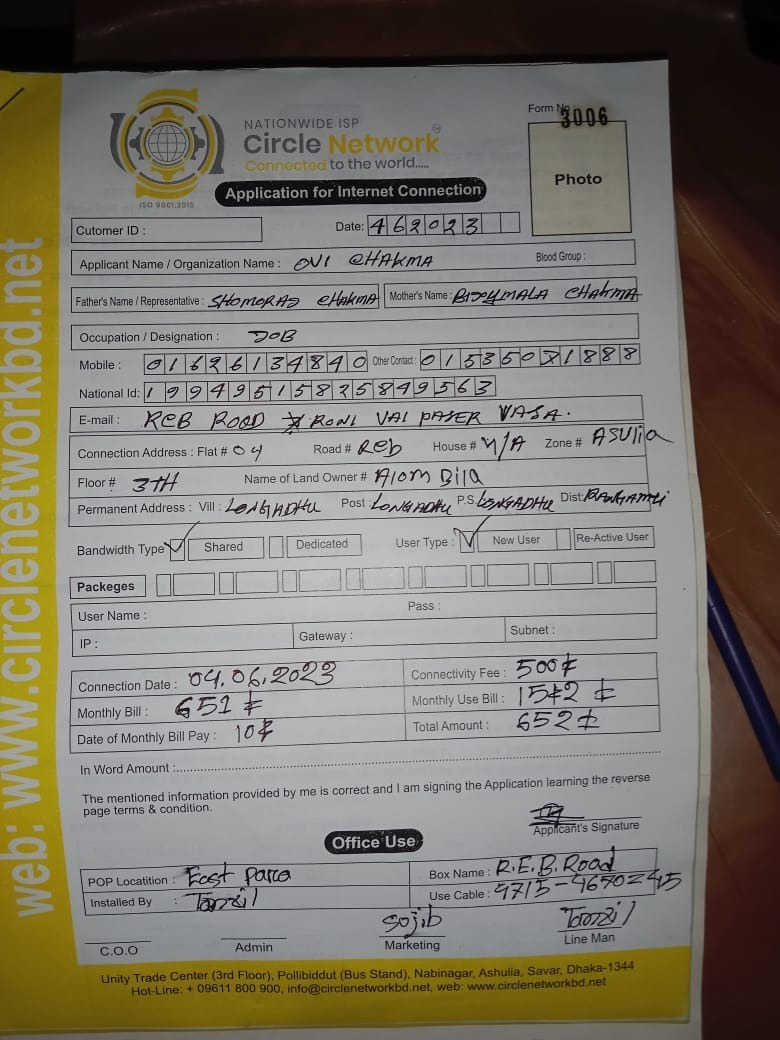 web: www.circlenetworkbd.net
NATIONWIDE ISP
Circle Network
Connected to the world.....
ISO 9001:2015
Form No :
3006
Photo
Application for Internet Connection
Cutomer ID :
Date: 462023
Applicant Name / Organization Name : OVI CHAKMA Blood Group :
Father's Name / Representative : SHOMORAS CHAKMA Mother's Name : CHAKMA
Occupation / Designation : JOB
Mobile : 01626134840 Other Contact : 01535071888
National Id: 19949515825849563
E-mail : REB ROOD RONI VAI PASER VASA.
Connection Address : Flat # 04 Road # Reb House # N/A Zone # ASUlia
Floor # 3TH Name of Land Owner # Alom Bila
Permanent Address : Vill : LONGADHU Post : LONGADHU P.S LONGADHU Dist: RANGAMATI
Bandwidth Type Shared Dedicated User Type : New User Re-Active User
Packeges
User Name : Pass :
IP : Gateway : Subnet :
Connection Date : 04.06.2023 Connectivity Fee : 500
Monthly Bill : 651 Monthly Use Bill :
Date of Monthly Bill Pay : 10 Total Amount : 652
In Word Amount :
The mentioned information provided by me is correct and I am signing the Application learning the reverse
page terms & condition.
Applicant's Signature
Office Use
POP Locatition : East Parca Box Name : R.E.B. Road
Installed By : Tanzil Use Cable : 4715-4670=45
Sojib Tanzil
C.O.O Admin Marketing Line Man
Unity Trade Center (3rd Floor), Pollibiddut (Bus Stand), Nabinagar, Ashulia, Savar, Dhaka-1344
Hot-Line: + 09611 800 900, info@circlenetworkbd.net, web: www.circlenetworkbd.net